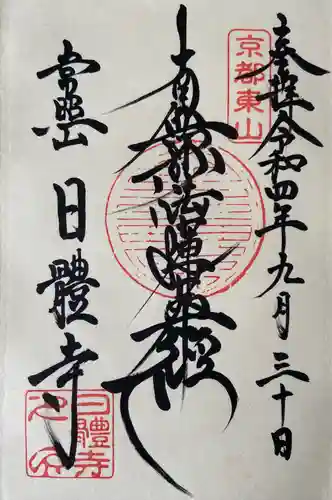 京都東山
奉拝令和四年九月三十日
南無妙法蓮華経
常照山
日體寺
日體寺之印